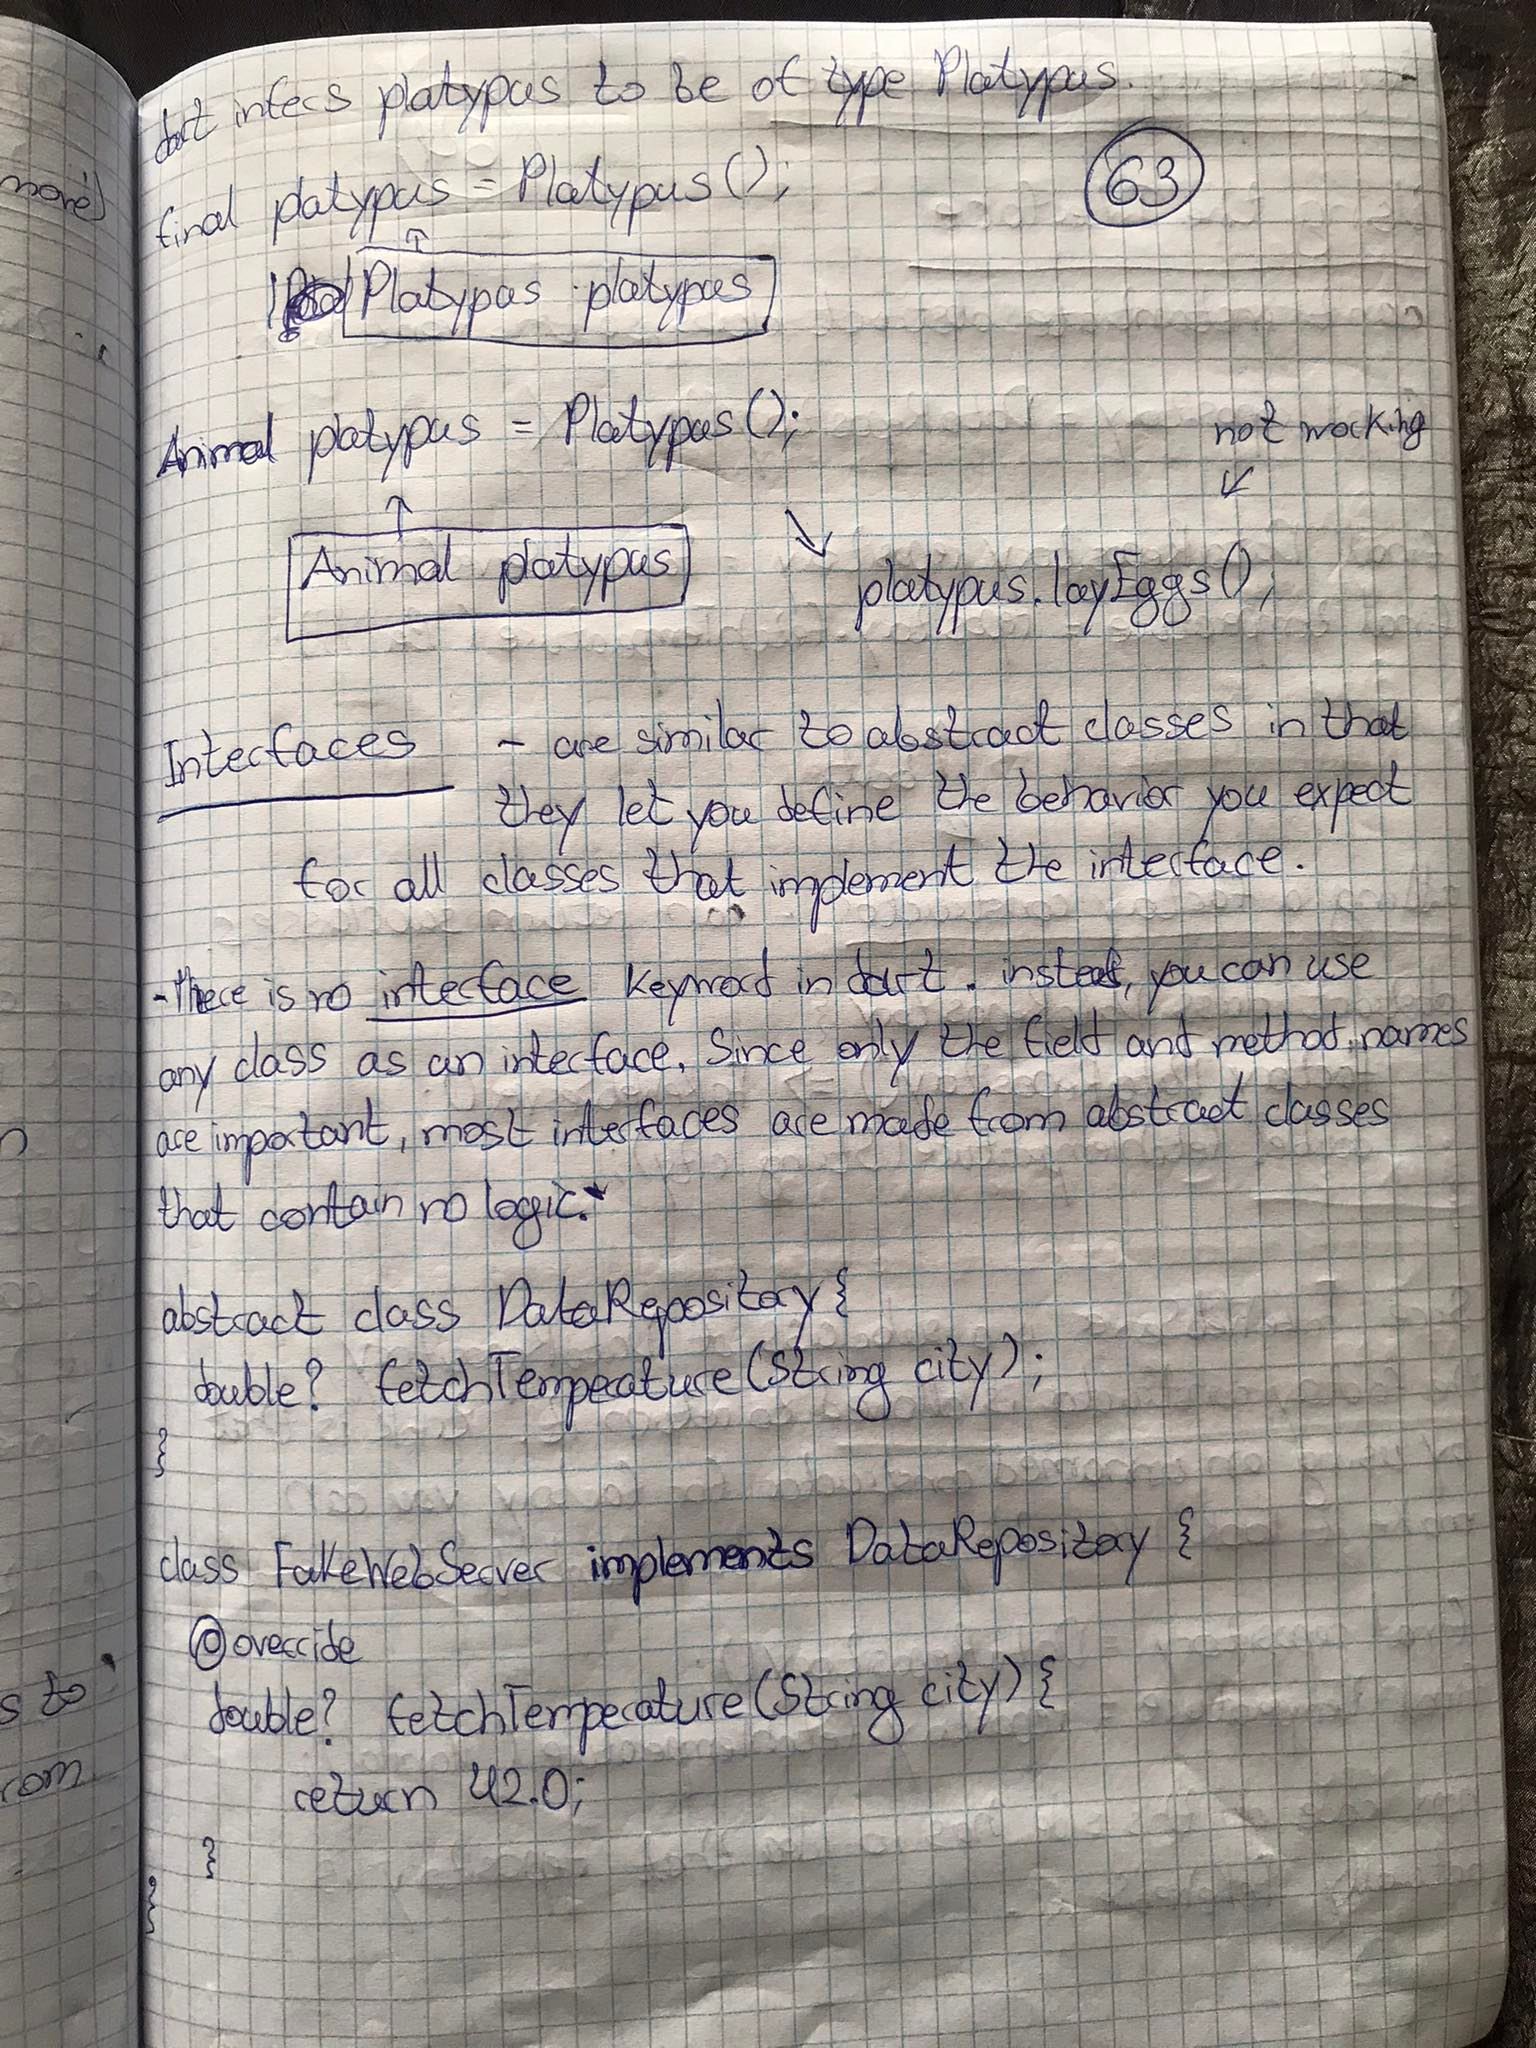 dart infers platypus to be of type Platypus.
63
final platypus = Platypus();
Platypus platypus
Animal platypus = Platypus();
not working
Animal platypus
platypus.layEggs();
Interfaces - are similar to abstract classes in that
they let you define the behavior you expect
for all classes that implement the interface.
- There is no interface keyword in dart. instead, you can use
any class as an interface. Since only the field and method names
are important, most interfaces are made from abstract classes
that contain no logic.
abstract class DataRepository {
double? fetchTemperature(String city);
}
class FakeWebServer implements DataRepository {
@override
double? fetchTemperature(String city) {
return 42.0;
}
}
more)
s to
rom